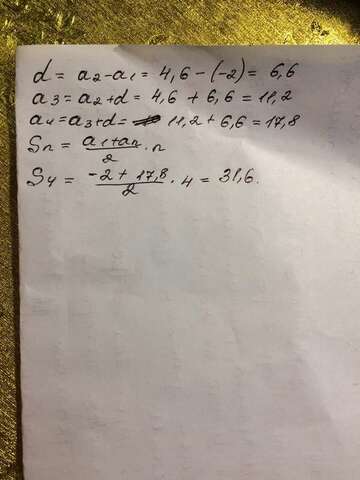 d = a2 - a1 = 4,6 - (-2) = 6,6
a3 = a2 + d = 4,6 + 6,6 = 11,2
a4 = a3 + d = 11,2 + 6,6 = 17,8
Sn = (a1 + an)/2 · n
S4 = (-2 + 17,8)/2 · 4 = 31,6.